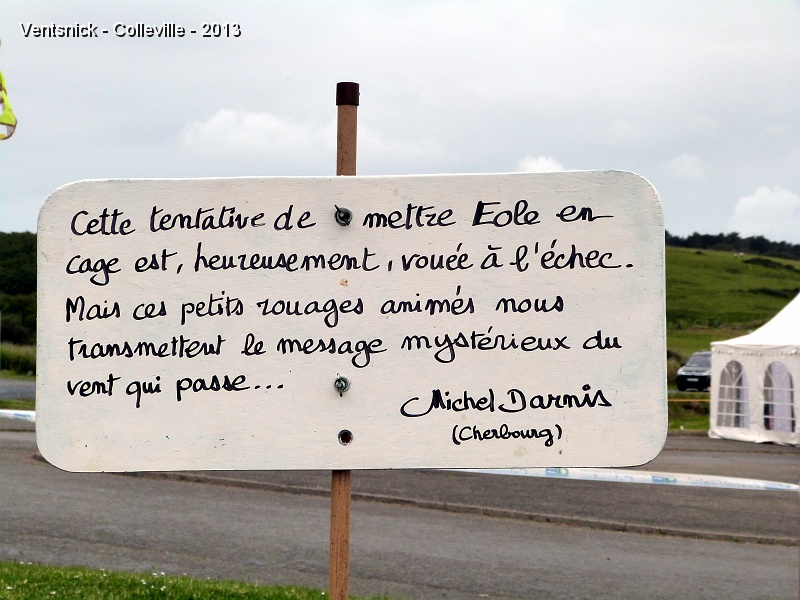 Ventsnick - Colleville - 2013
Cette tentative de mettre Eole en
cage est, heureusement, vouée à l'échec.
Mais ces petits rouages animés nous
transmettent le message mystérieux du
vent qui passe...
Michel Darnis
(Cherbourg)